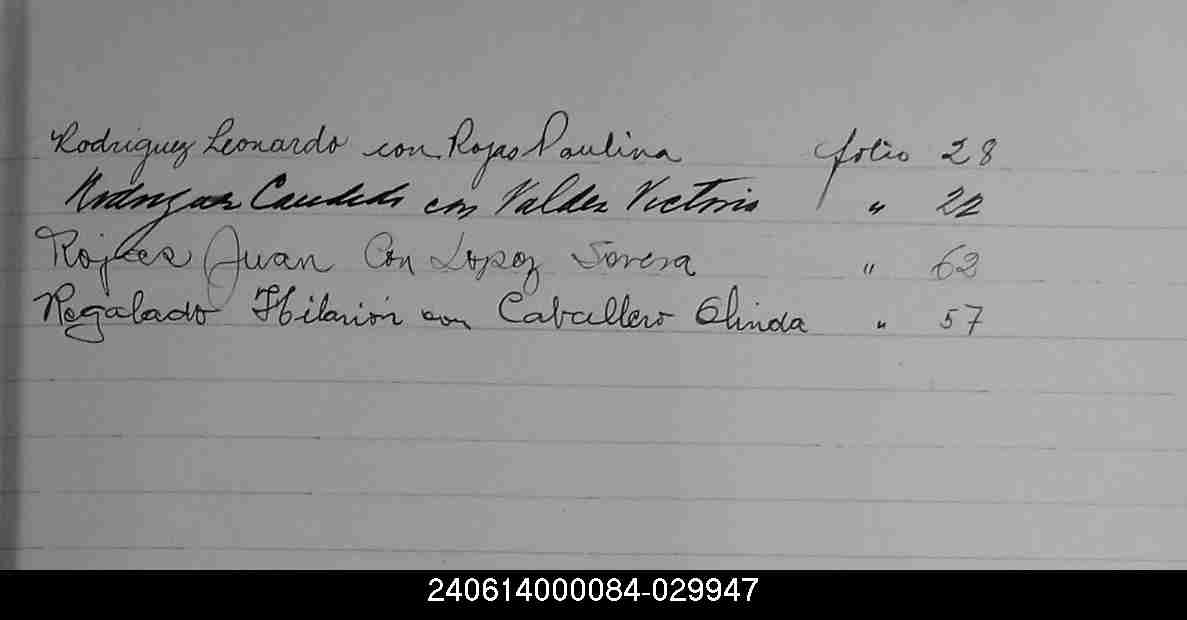 Rodriguez Leonardo con Rojas Paulina folio 28
Rodriguez Candido con Valdez Victoria " 22
Rojas Juan Con Lopez " 62
Regalado Hilarión con Caballero Olinda " 57
240614000084-029947